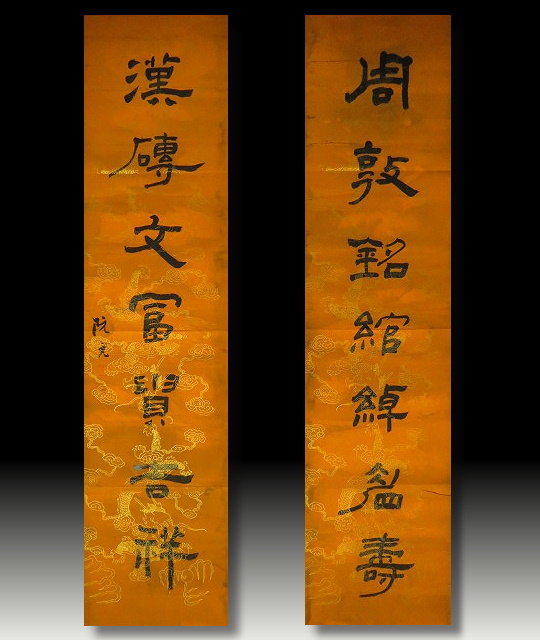 周敦銘綰綽眉壽
漢磚文富貴吉祥
阮元